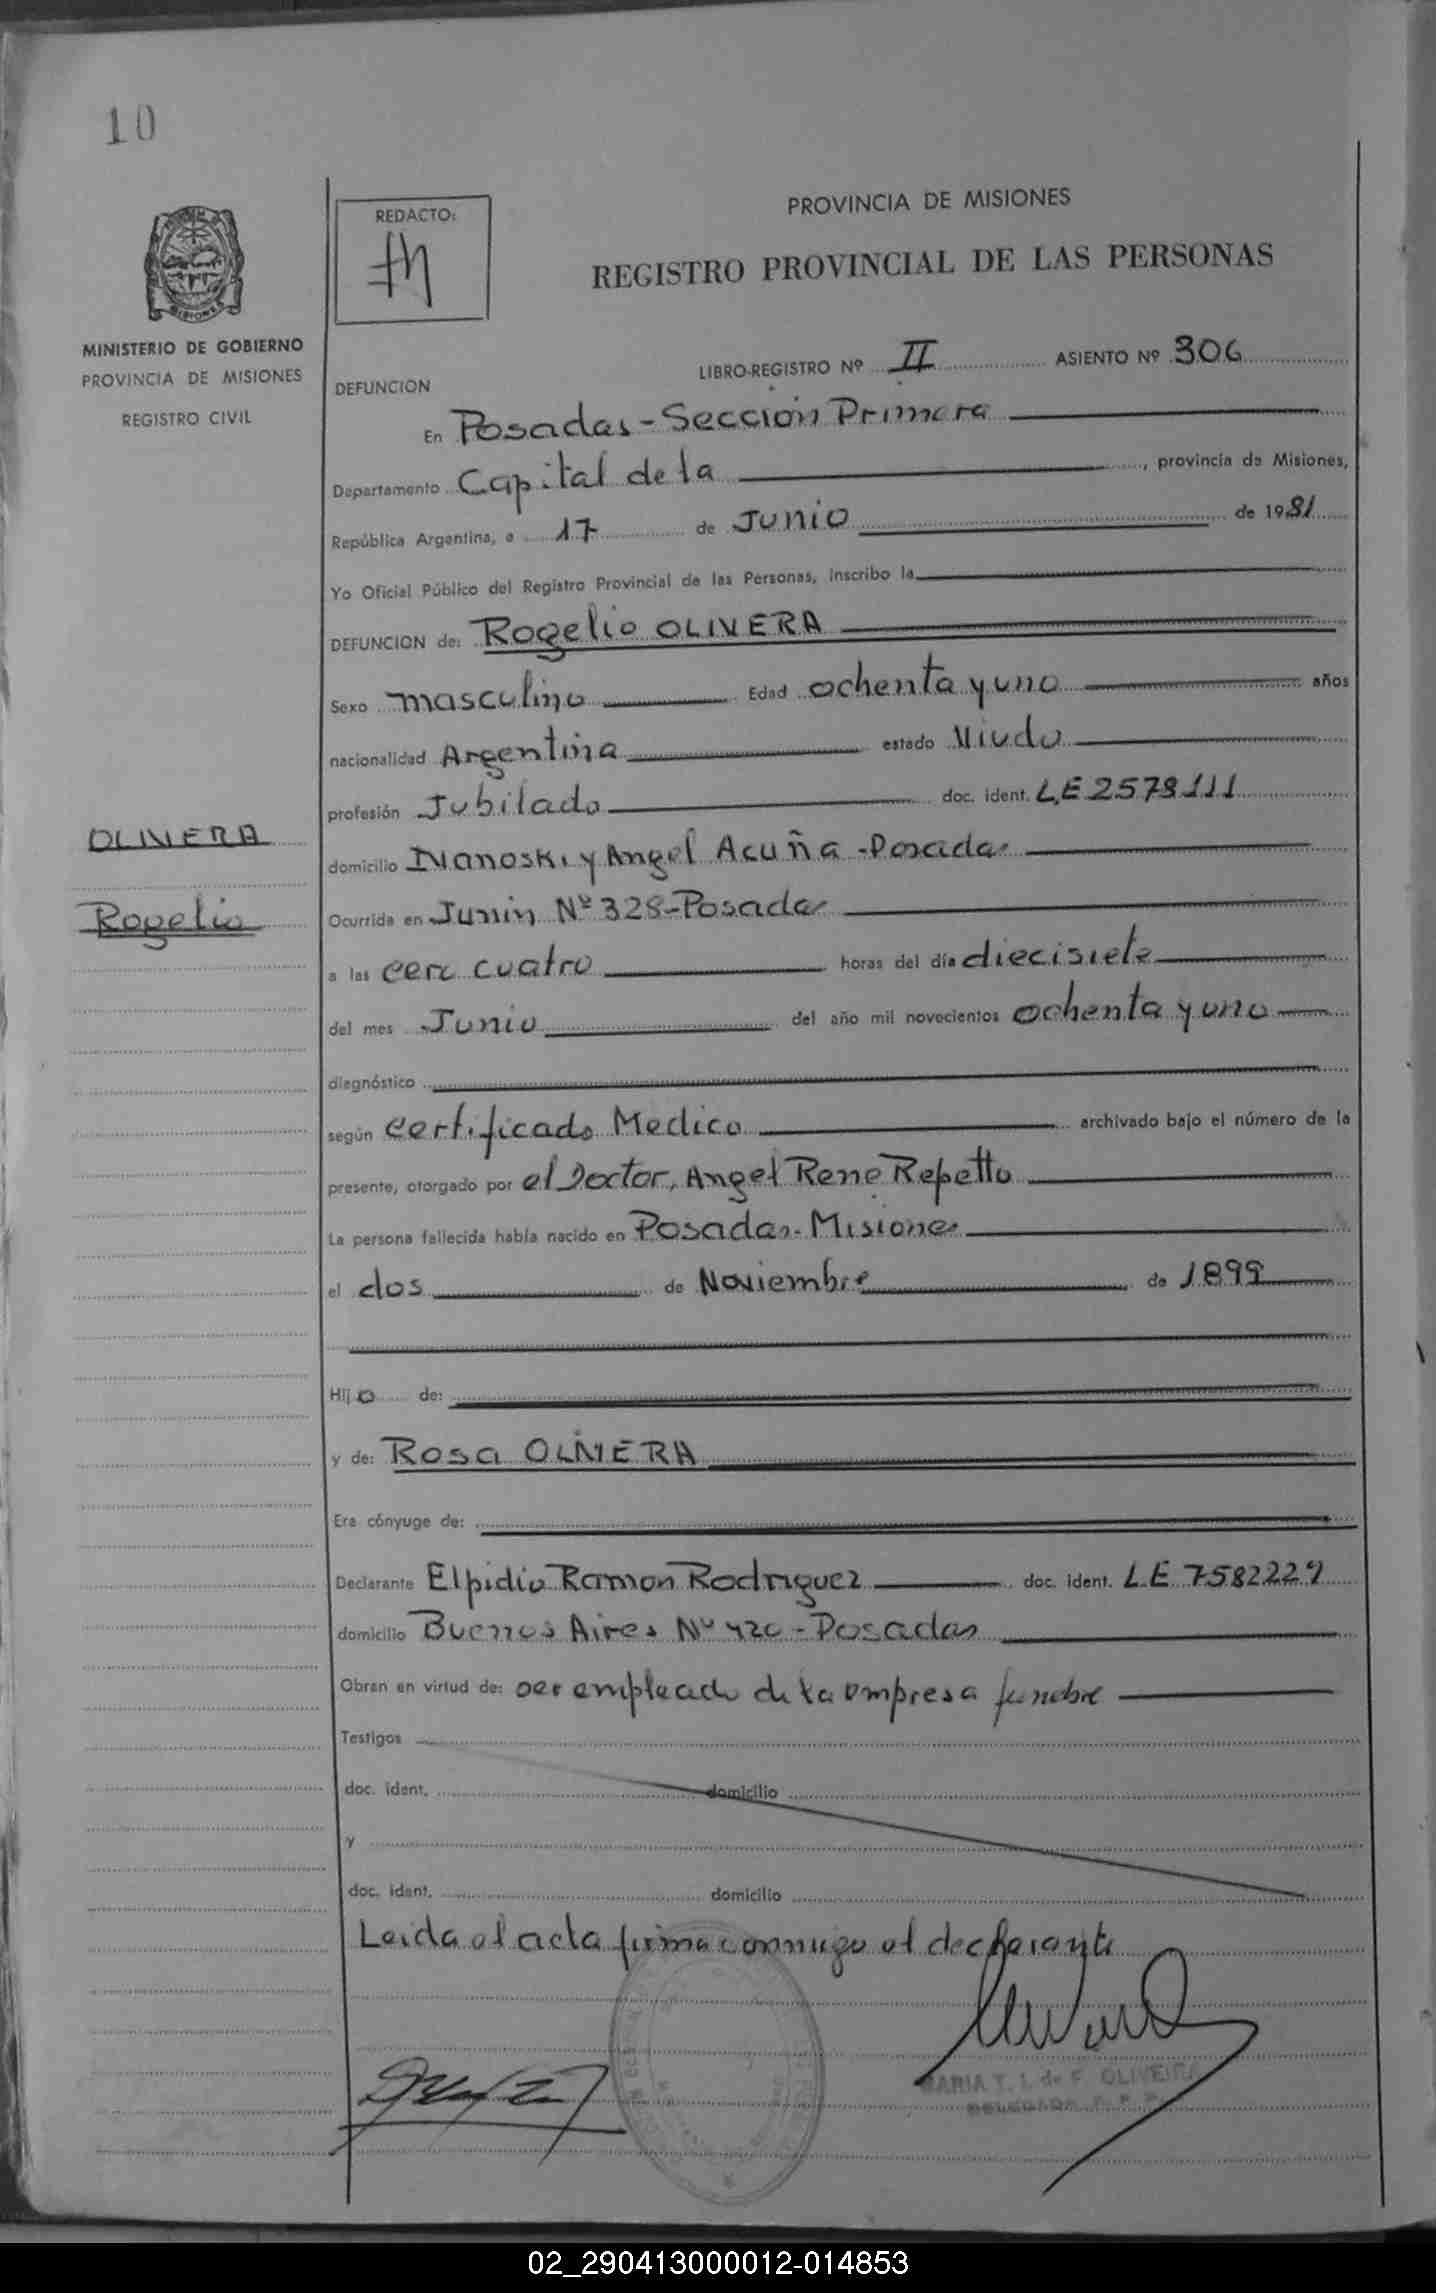 10
REDACTO:
PROVINCIA DE MISIONES
REGISTRO PROVINCIAL DE LAS PERSONAS
MISIONES
MINISTERIO DE GOBIERNO
PROVINCIA DE MISIONES
REGISTRO CIVIL
LIBRO-REGISTRO Nº II ASIENTO Nº 306
DEFUNCION
En Posadas - Sección Primera
Departamento Capital de la, provincia de Misiones,
República Argentina, a 17 de Junio de 1981
Yo Oficial Público del Registro Provincial de las Personas, inscribo la
DEFUNCION de: Rogelio OLIVERA
Sexo masculino Edad ochenta y uno años
nacionalidad Argentina estado Viudo
profesión Jubilado doc. ident. LE 2578111
OLIVERA
Rogelio
domicilio Ivanoski y Angel Acuña - Posadas
Ocurrida en Junin Nº 328 - Posadas
a las cero cuatro horas del día diecisiete
del mes Junio del año mil novecientos ochenta y uno
diagnóstico
según certificado Medico archivado bajo el número de la
presente, otorgado por el Doctor, Angel Rene Repetto
La persona fallecida había nacido en Posadas - Misiones
el dos de Noviembre de 1899
Hijo de:
y de: Rosa OLIVERA
Era cónyuge de:
Declarante Elpidio Ramon Rodriguez doc. ident. LE 7582229
domicilio Buenos Aires Nº 420 - Posadas
Obran en virtud de: ser empleado de la empresa funebre
Testigos
doc. ident. domicilio
y
doc. ident. domicilio
Leida el acta firma conmigo el declarante
MARIA T. I. de F. OLIVEIRA
DELEGADA R. P. P.
02_290413000012-014853